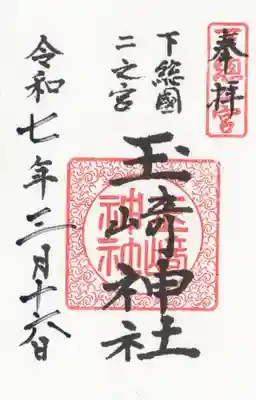 奉拝
下総國
二之宮
玉崎神社
令和七年三月十六日